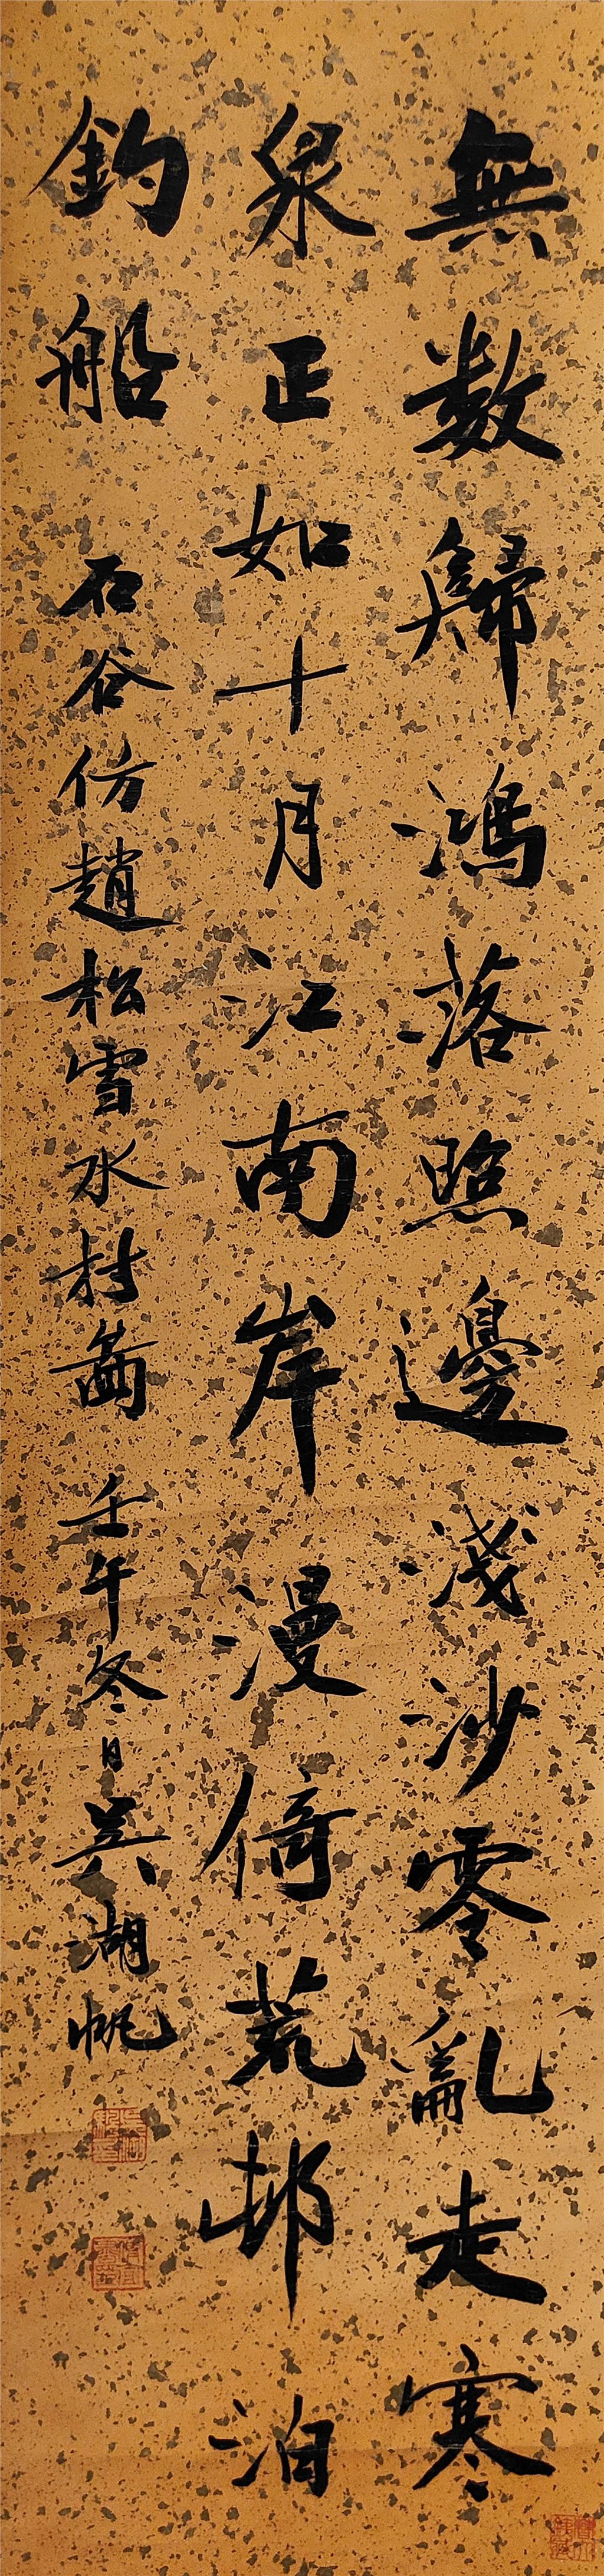 無数歸鴻落照邊淺沙零亂走寒
泉正如十月江南岸漫倚荒邨泊
釣船 石谷仿趙松雪水村啚 壬午冬日吳湖帆